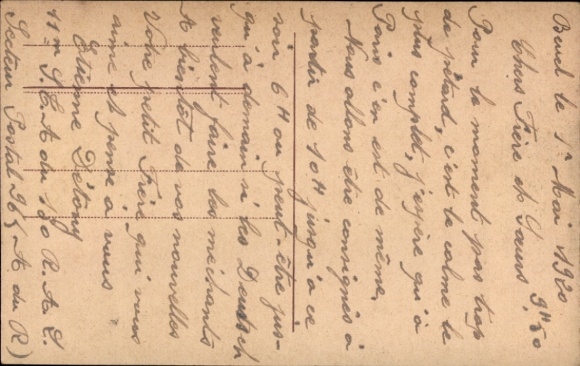 Buel le 1r Mai 1920
Chers Frère et Sœurs 9H50
Pour le moment pas trop
de pétard, c'est le calme le
plus complet, j'espère qu'à
Paris c'en est de même,
Nous allons être consignés à
partir de 10H jusqu'à ce
soir 6H ou peut-être jus-
qu'à demain si les Deutsch
veulent faire les méchants
A bientôt de vos nouvelles
Votre petit Frère qui vous
aime et pense à vous
Etienne
11m S. 180 R. A. L.
Secteur Postal 96 (A du R)